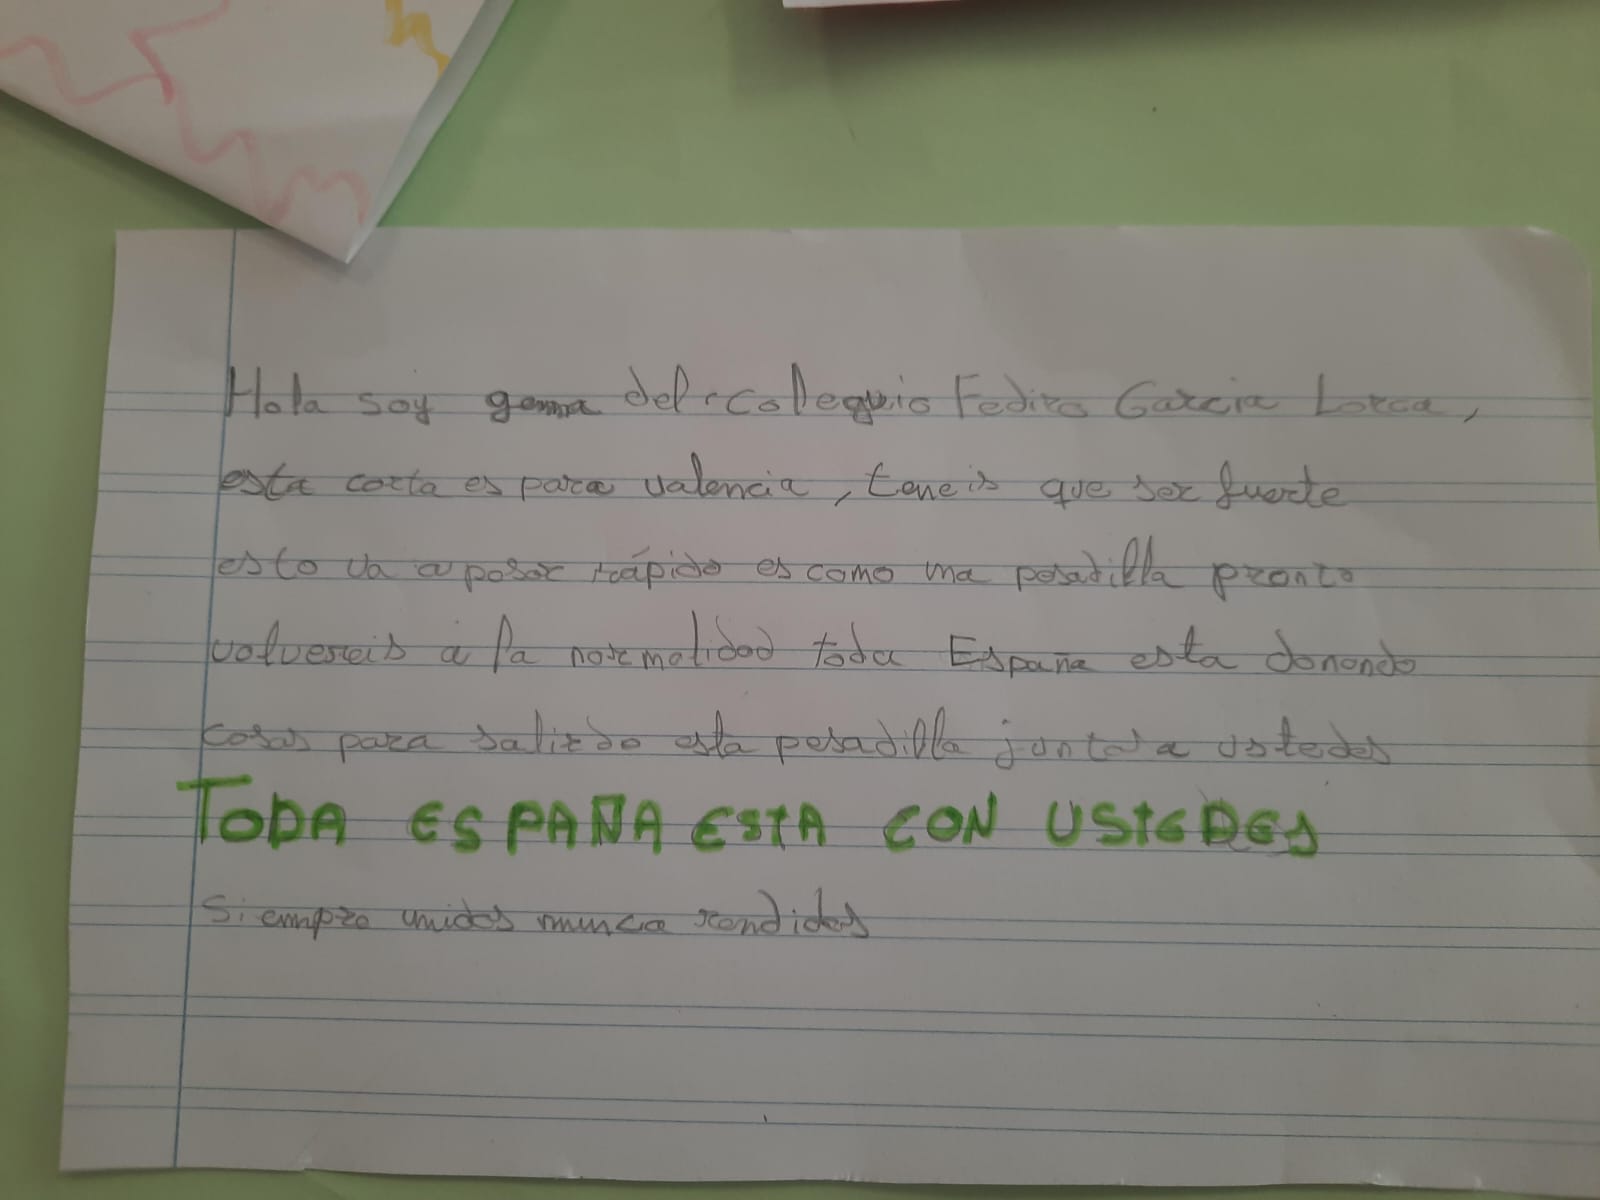 Hola soy gemma del colegio Fedirо Garcia Lorca,
esta carta es para valencia, teneis que ser fuerte
esto va a pasar rápido es como una pesadilla pronto
volvereis a la normalidad toda España esta donando
cosas para salir do esta pesadilla juntos a ustedes
TODA ESPAÑA ESTA CON USTEDES
Siempre unidos nunca rendidos